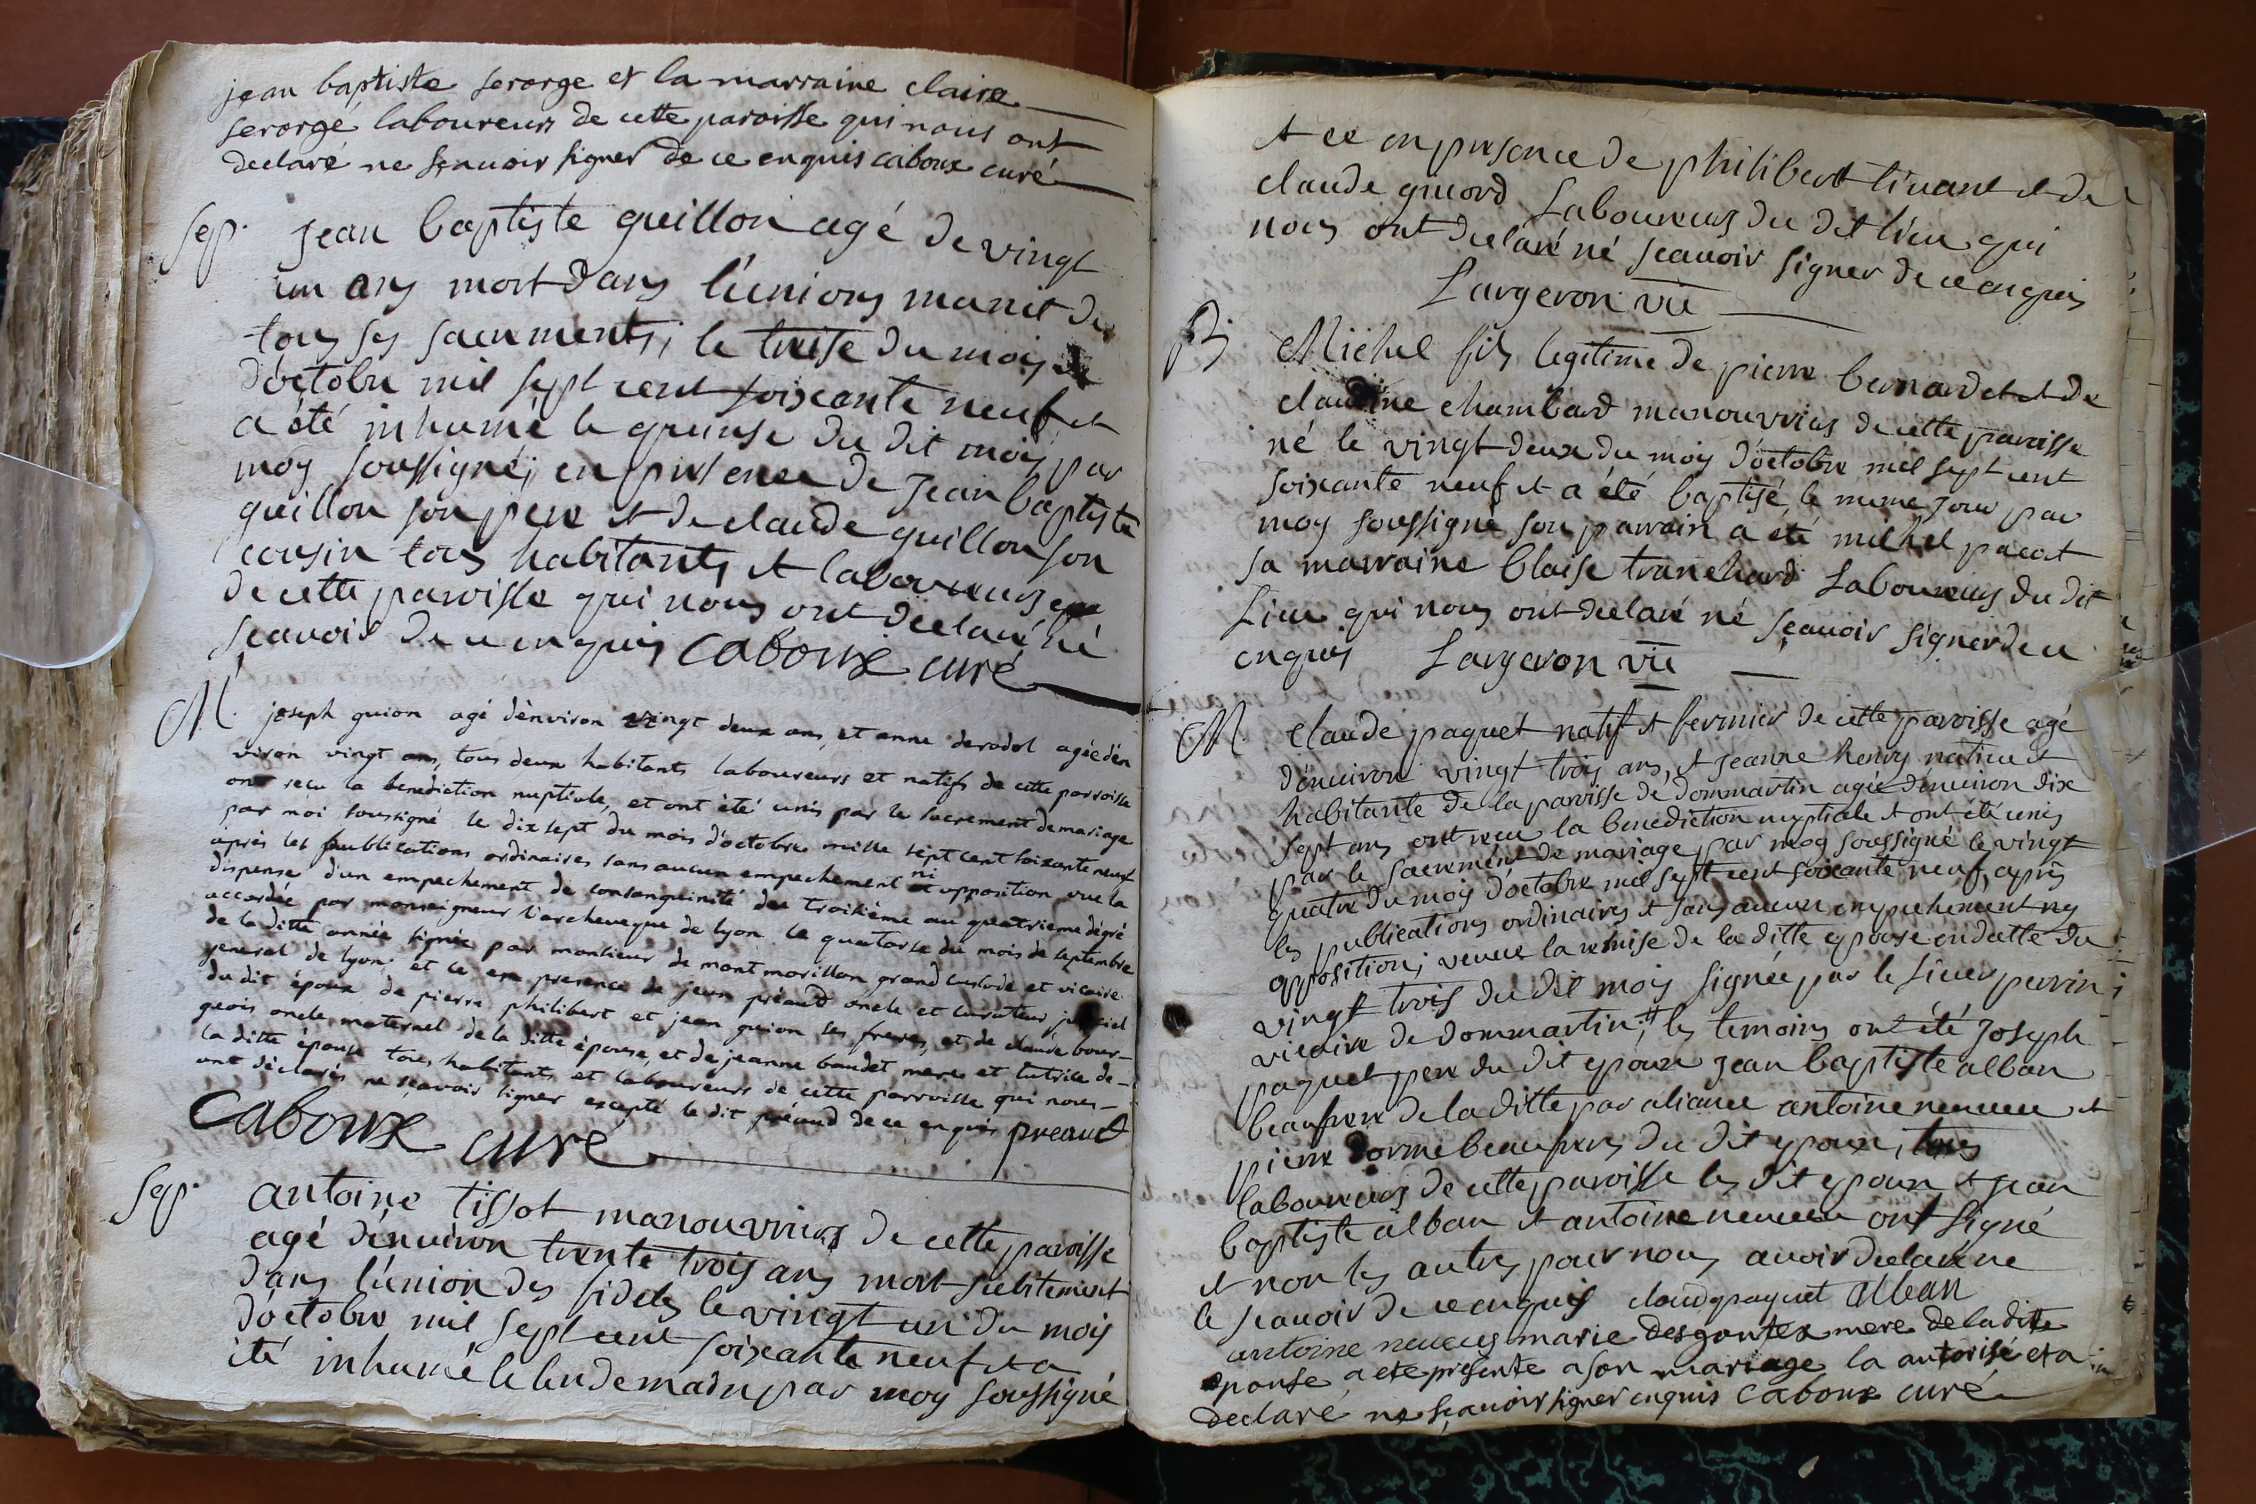 jean baptiste serorge et la marraine claire
serorgé laboureurs de cette paroisse qui nous ont
declaré ne sçauoir signer de ce enquis caboux curé
sep. jean baptiste guillon agé de vingt
un ans mort dans l'unions munit de
tous ses sacrements, le treise du mois de
d'octobre mil sept cent soixante neuf et
a été inhumé le quinse du dit mois par
moy soussigné, en presence de jean baptiste
guillon son pere et de claude guillon son
cousin tous habitants et laboureurs
de cette paroisse qui nous ont declaré né
sçauoir de ce enquis caboux curé
M. joseph guion agé dénviron vingt deux ans, et anne derodol agée dén
viron vingt ans, tous deux habitants laboureurs et natifs de cette parroisse
ont recu la benediction nuptiale, et ont été unis par le sacrement de mariage
par moi soussigné le dix sept du mois d'octobre mille sept cent soixante neuf
après les publications ordinaires sans aucun empechement ni opposition vue la
dispense d'un empechement de consanguinité du troisième au quatrieme dégré
accordée par monseigneur l'archeveque de lyon le quatorse du mois de septembre
de la ditte année signée par monsieur de montmorillon grand custode et vicaire
general de lyon et ce en presence de jean préaud oncle et curateur
du dit époux de pierre philibert et jean guion ses freres, et de claude bour-
geois oncle maternel de la ditte épouse, et de jeanne baudet mere et tutrice de-
la ditte épouse tous habitants et laboureurs de cette parroisse qui nous-
ont déclarés ne sçavoir signer excepté le dit préaud de ce enquis preaud
caboux curé
sep. antoine tissot manouvriers de cette paroisse
agé dénuiron trente trois ans mort subitement
dans l'union des fideles le vingt un du mois
d'octobre mil sept cent soixante neuf et a
été inhumé le lendemain par moy soussigné
et ce en presence de philibert tiuant et de
claude guiord Laboureurs du dit lieu qui
nous ont declaré né sçauoir signer de ce enquis
Largeron vic
B Michel fils legitime de pierre bernardet et de
claudine chambard manouvriers de cette paroisse
né le vingt deux du mois d'octobre mil sept cent
soixante neuf et a été baptisé, le meme jour par
moy soussigné son parrain a été michel pacot
sa marraine blaise tranchard Laboureurs du dit
Lieu qui nous ont declaré né sçauoir signer de ce
enquis Largeron vic
M claude paquet natif et fermier de cette paroisse agé
dénuiron vingt trois ans, et jeanne henry natiue et
habitante de la paroisse de dommartin agée dénuiron dix
sept ans ont reçu la benediction nuptiale et ont été unis
par le sacrement de mariage par moy soussigné le vingt
quatre du mois d'octobre mil sept cent soixante neuf, après
les publications ordinaires et sans aucun empechement ny
opposition; veüe la remise de la ditte epouse en datte du
vingt trois du dit mois signée par le sieur perrin
vicaire de dommartin; les temoins ont été joseph
paquet pere du dit epoux jean baptiste alban
beaufrere de la ditte par aliance antoine neuueu et
pierre dorme beaufreres du dit epoux, tous
laboureurs de cette paroisse les dit epoux et jean
baptiste alban et antoine neuueu ont signé
et non les autres pour nous auoir declaré ne
le sçauoir de ce enquis claud paquet alban
antoine neueus marie desgoutes mere de la ditte
epouse a ete presente a son mariage la autorisé et a
declaré ne sçauoir signer enquis caboux curé